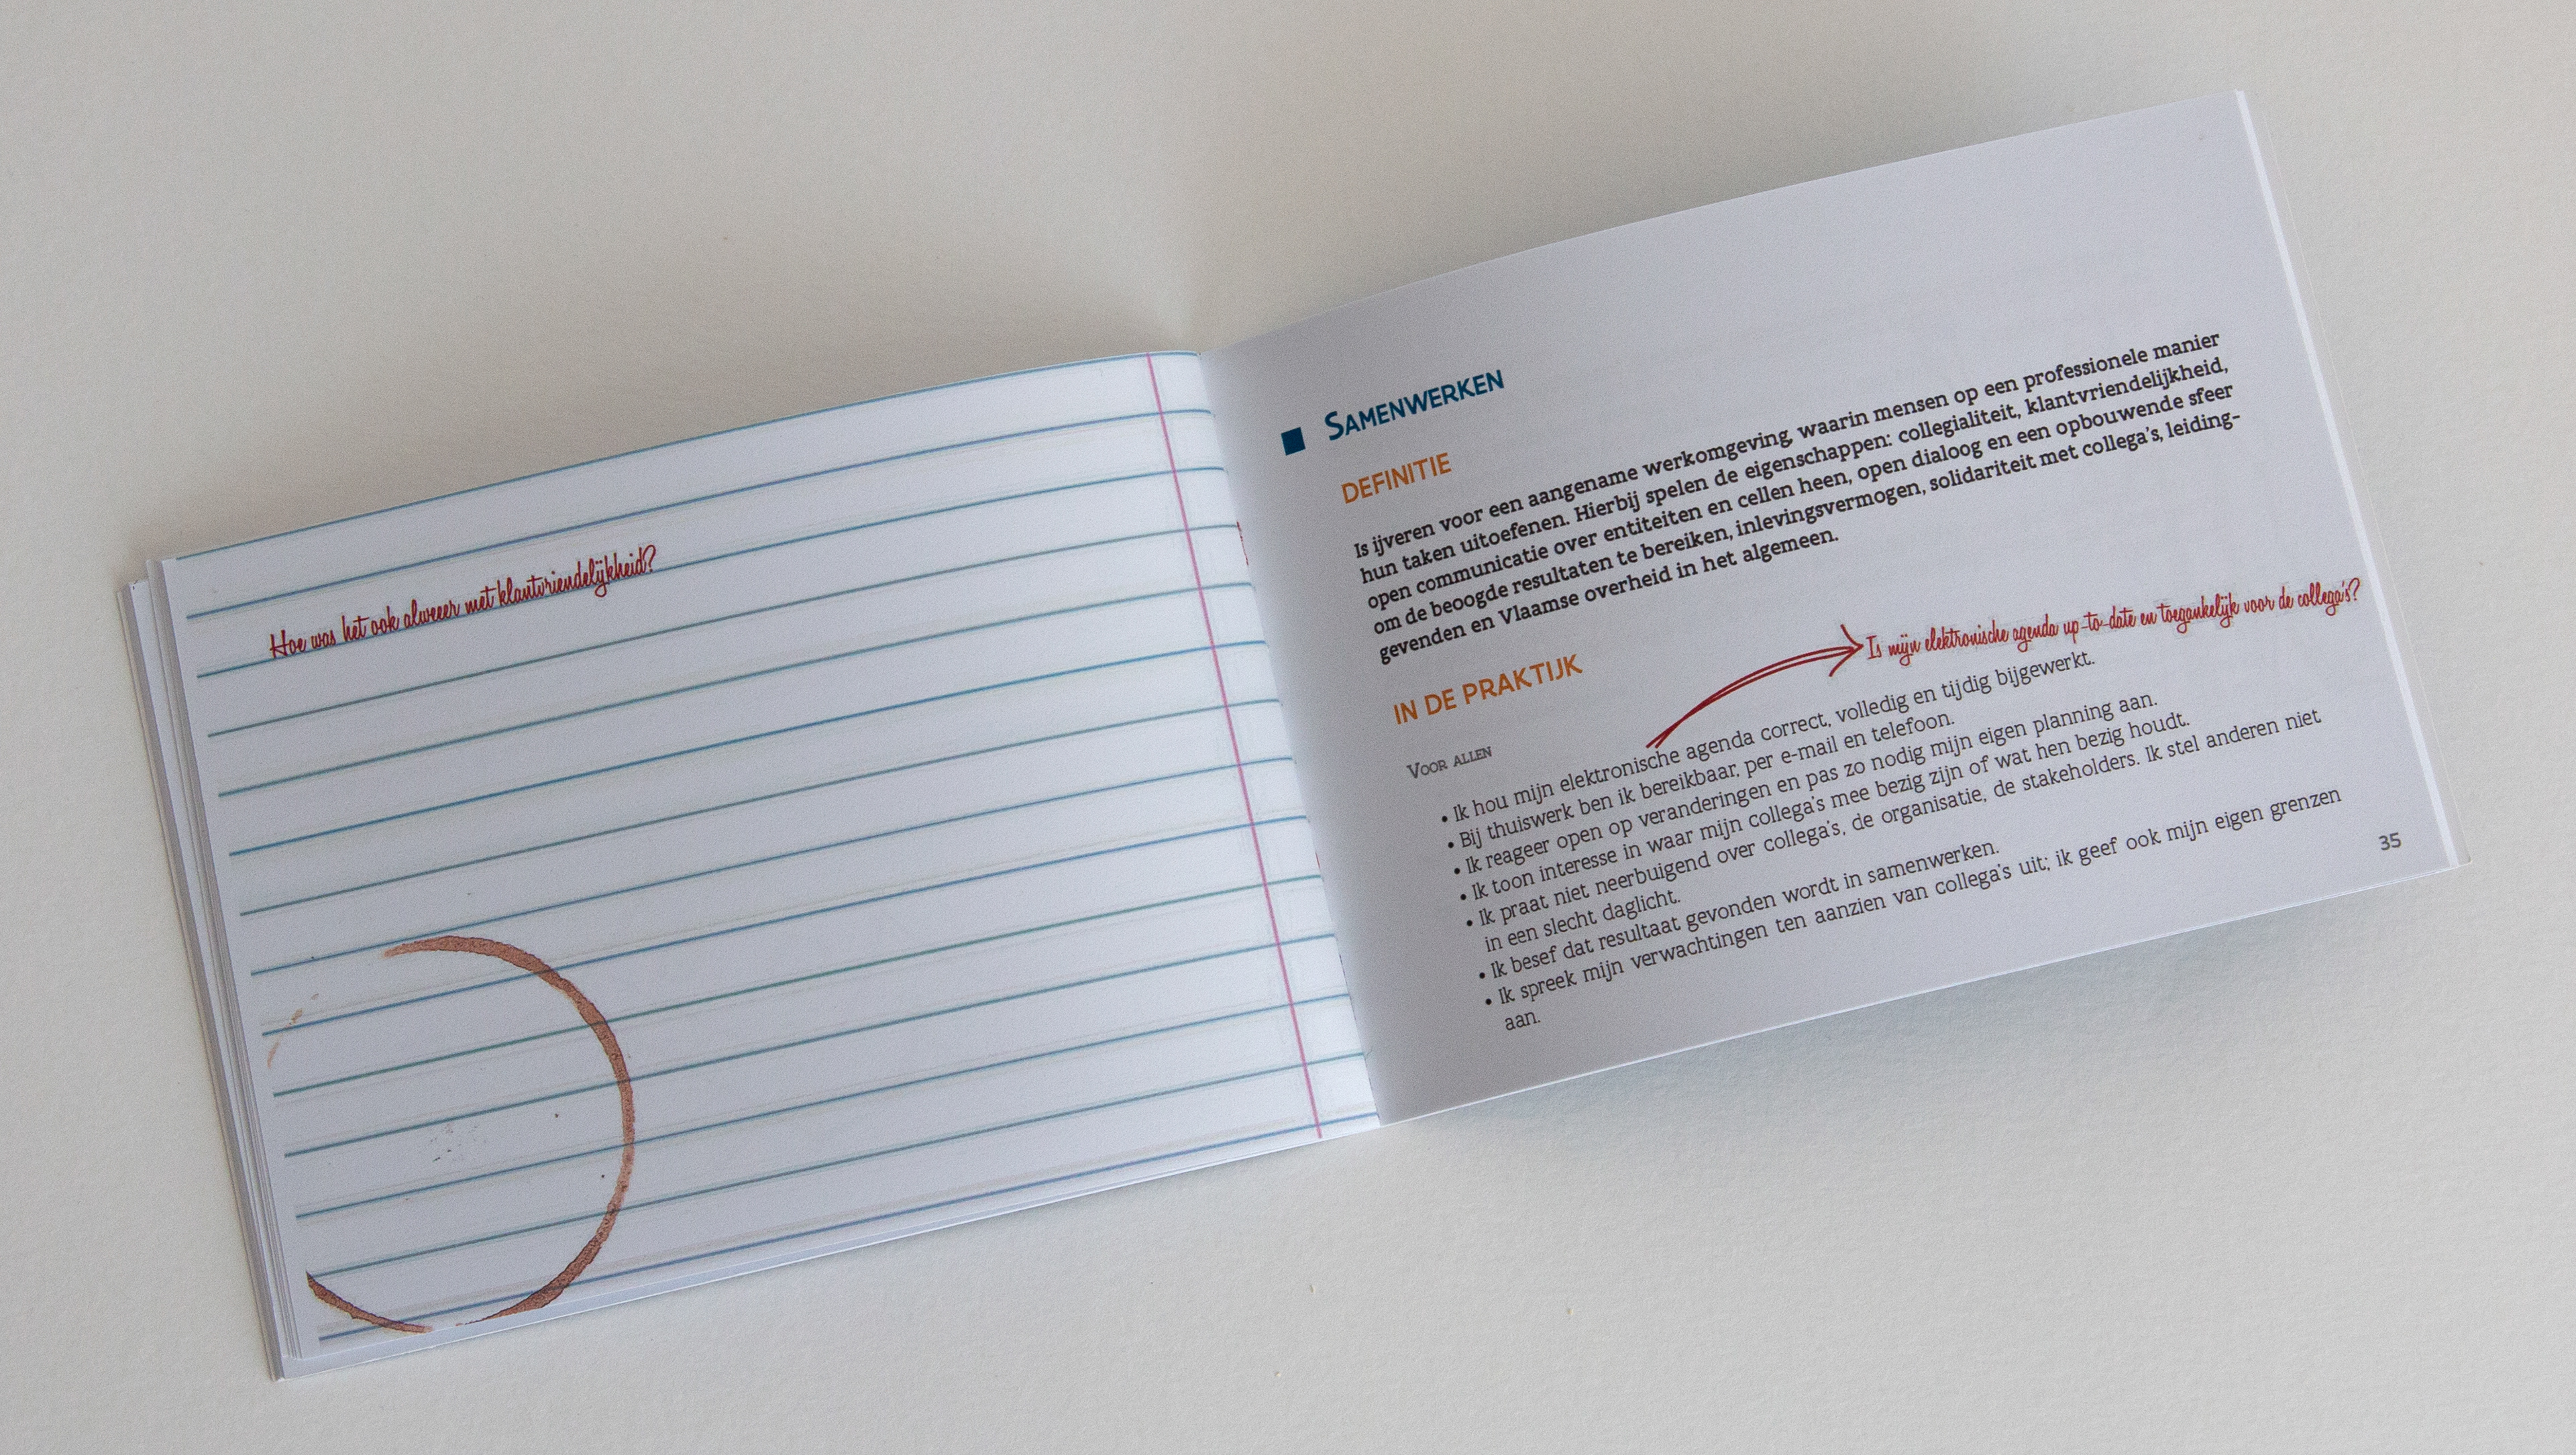 Hoe was het ook alweeer met klantvriendelijkheid?
SAMENWERKEN
DEFINITIE
Is ijveren voor een aangename werkomgeving, waarin mensen op een professionele manier
hun taken uitoefenen. Hierbij spelen de eigenschappen: collegialiteit, klantvriendelijkheid,
open communicatie over entiteiten en cellen heen, open dialoog en een opbouwende sfeer
om de beoogde resultaten te bereiken, inlevingsvermogen, solidariteit met collega's, leiding-
gevenden en Vlaamse overheid in het algemeen.
Is mijn elektronische agenda up-to-date en toegankelijk voor de collega's?
IN DE PRAKTIJK
VOOR ALLEN
• Ik hou mijn elektronische agenda correct, volledig en tijdig bijgewerkt.
• Bij thuiswerk ben ik bereikbaar, per e-mail en telefoon.
• Ik reageer open op veranderingen en pas zo nodig mijn eigen planning aan.
• Ik toon interesse in waar mijn collega's mee bezig zijn of wat hen bezig houdt.
• Ik praat niet neerbuigend over collega's, de organisatie, de stakeholders. Ik stel anderen niet
in een slecht daglicht.
• Ik besef dat resultaat gevonden wordt in samenwerken.
• Ik spreek mijn verwachtingen ten aanzien van collega's uit; ik geef ook mijn eigen grenzen
aan.
35